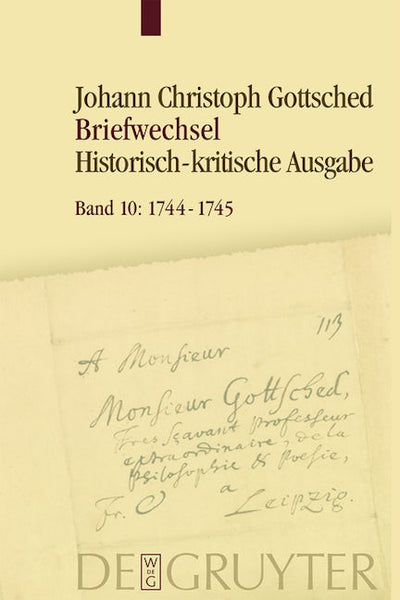 Johann Christoph Gottsched
Briefwechsel
Historisch-kritische Ausgabe
Band 10: 1744 - 1745
113
A Monsieur
Monsieur Gottsched,
Tres Sçavant Professeur
extraordinaire, de la
Philosophie & Poesie,
Fr. a
Leipzig.
DE GRUYTER
W
DE
G